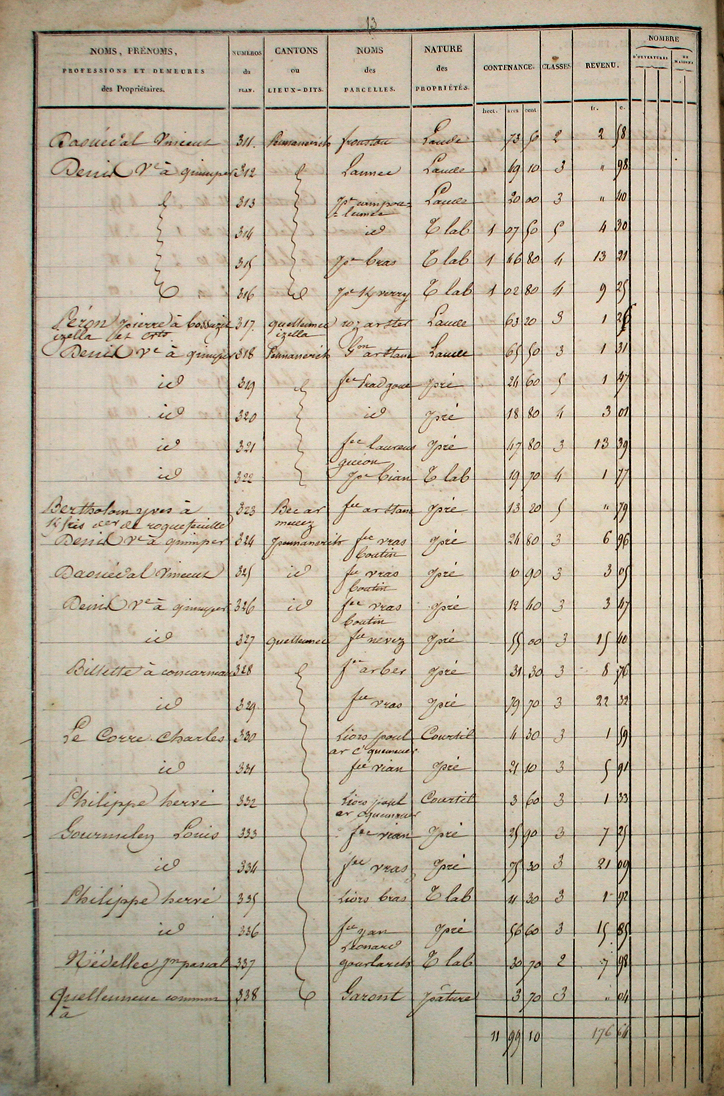 13
NOMS, PRÉNOMS, PROFESSIONS ET DEMEURES des Propriétaires. NUMÉROS du PLAN. CANTONS ou LIEUX-DITS. NOMS des PARCELLES. NATURE des PROPRIÉTÉS. CONTENANCE. CLASSES. REVENU. NOMBRE D'OUVERTURES
hect. ares cent. fr. c.
Vincent 311 Penmanerich Laude 73 50 2 2 58
Denid Ve à quimper 312 Lannec Laude " 69 10 3 " 98
313 Laude 20 00 3 " 40
314 id T lab 1 07 50 5 4 30
315 bras T lab 1 46 80 4 13 21
316 T lab 1 02 80 4 9 25
Péron pierre à
izella 317 quelleunec izella roz ar ster Laude 63 20 3 1 26
Denid Ve à quimper 318 Penmanerich Laude 65 50 3 1 31
id 319 pré 24 60 5 1 47
id 320 id pré 18 80 4 3 01
id 321 fec laurens guéon pré 47 80 3 13 39
id 322 bian T lab 19 70 4 1 77
Bertholom yves à
de roquefeuille 323 Bec ar menez pré 13 20 5 " 79
Denid Ve à quimper 324 penmanerich fec vras Coutin pré 24 80 3 6 96
Vincent 325 id fec vras Coutin pré 10 90 3 3 05
Denid Ve à quimper 326 id fec vras Coutin pré 12 40 3 3 47
id 327 quelleunec fec nevez pré 55 00 3 15 40
Billette à concarneau 328 pré 31 30 3 8 76
id 329 fec vras pré 79 70 3 22 32
Le Corre Charles 330 Liors poul Courtil 4 30 3 1 59
id 331 fec vian pré 21 10 3 5 91
Philippe hervé 332 Liors poul Courtil 3 60 3 1 33
Gourmelen Louis 333 fec vian pré 25 90 3 7 25
id 334 fec vras pré 75 30 3 21 09
Philippe hervé 335 Liors bras T lab 11 30 3 1 92
id 336 Léonard pré 56 60 3 15 85
Névellec jn pascal 337 gourlarch T lab 30 70 2 7 98
quelleuneuc commun
à 338 Garont pâture 3 70 3 " 04
11 99 10 176 64